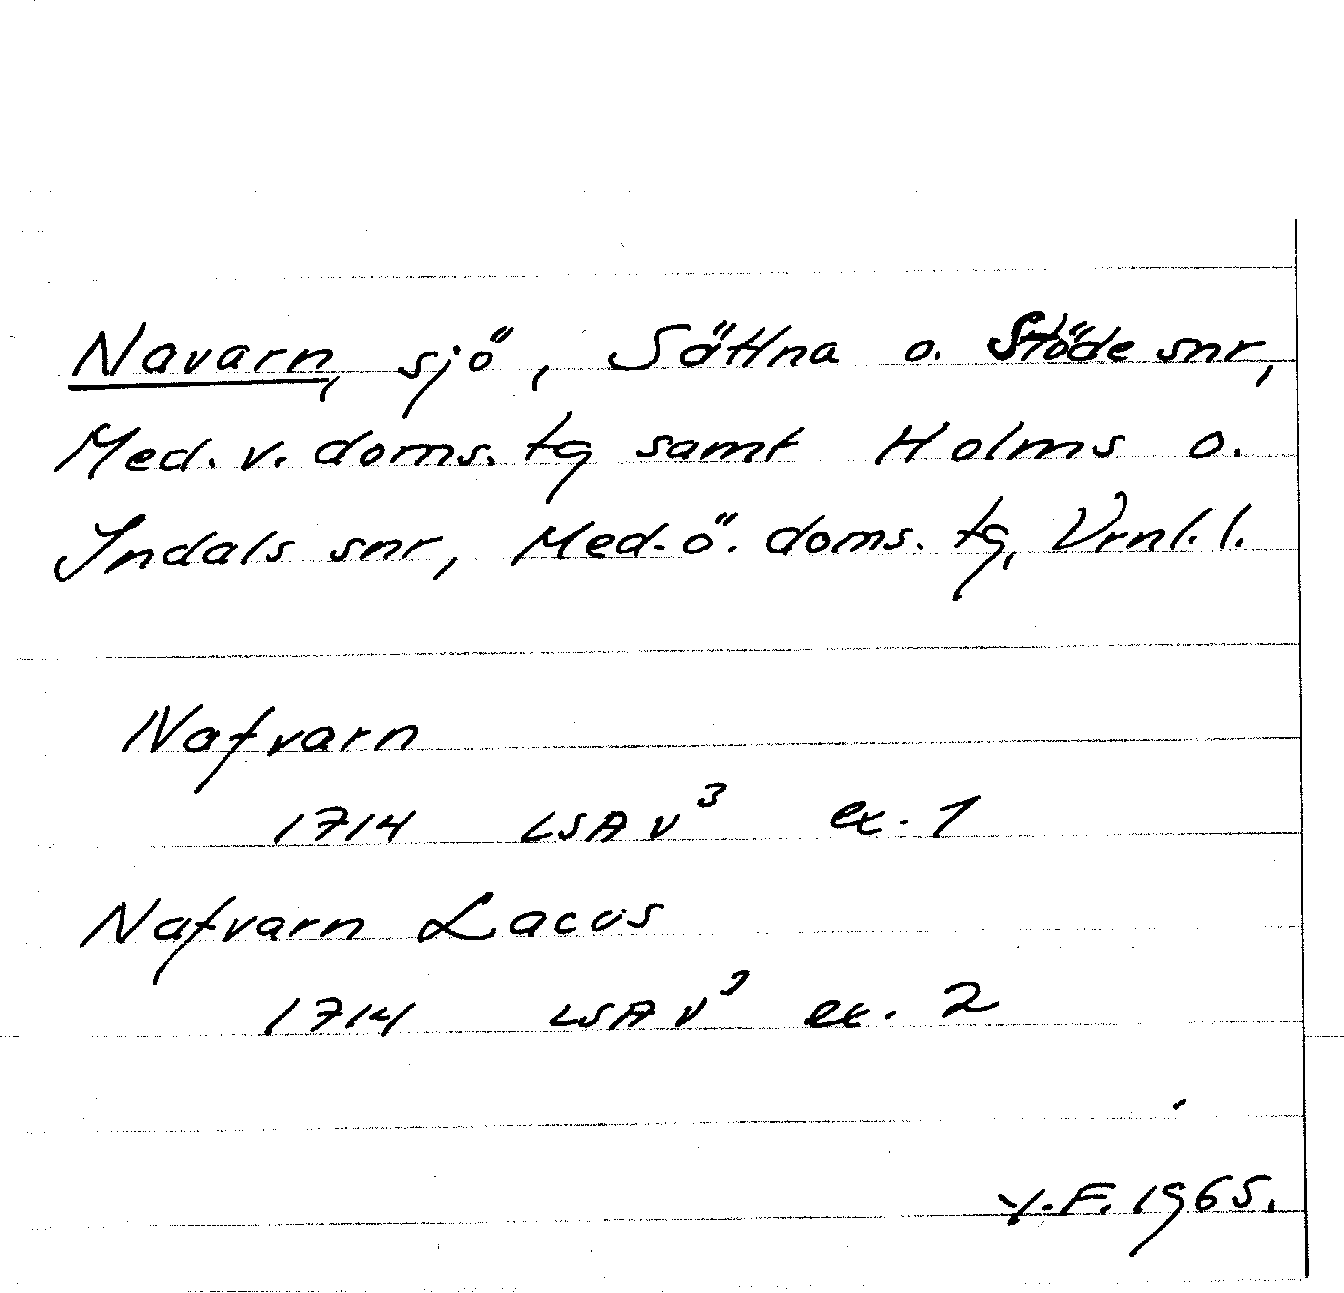 Navarn, sjö, Sättna o. Stöde snr,
Med. v. doms. tg samt Holms o.
Indals snr, Med. ö. doms. tg, Vrnl. l.
Nafvarn
1714 LSA V³ ex. 1
Nafvarn Lacus
1714 LSA V³ ex. 2
Y.F. 1965.